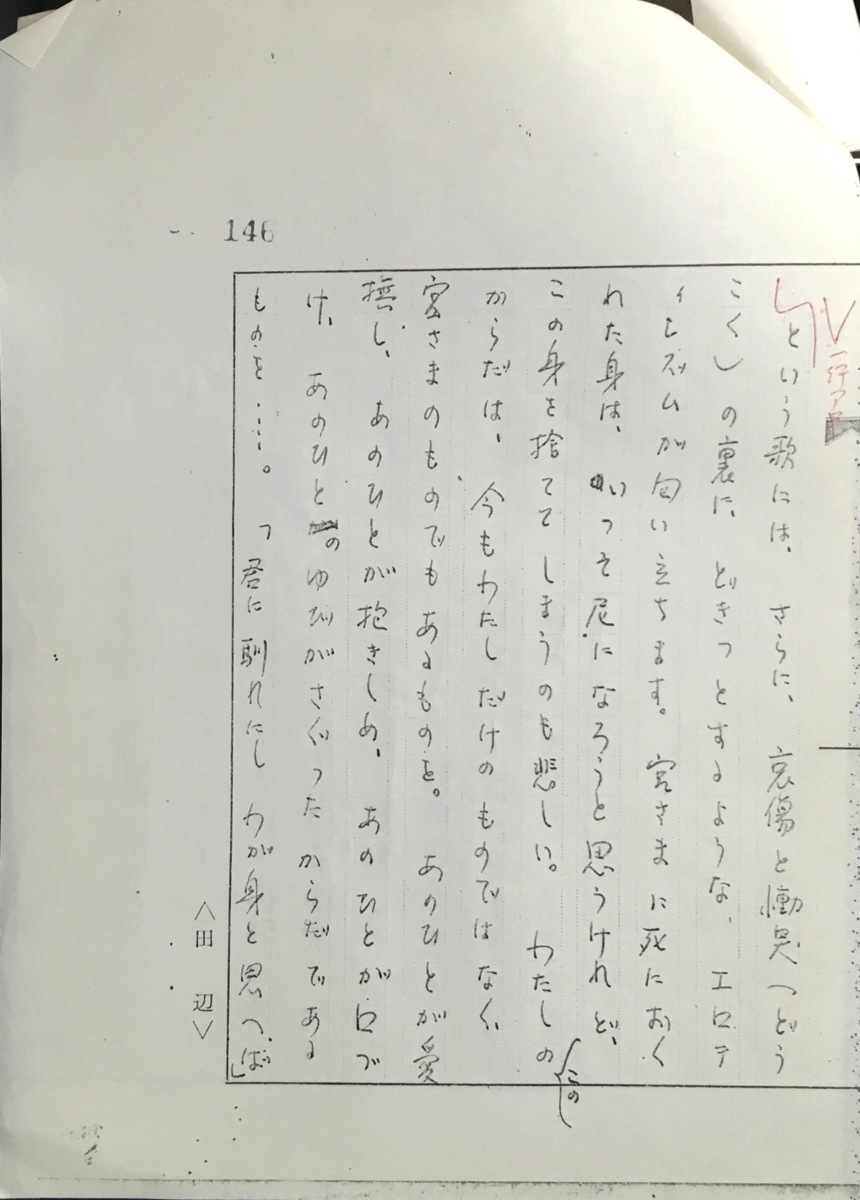 146
一行アキ
」という歌には、さらに、哀傷と慟哭（どう
こく）の裏に、どきっとするような、エロテ
ィシズムが匂い立ちます。宮さまに死におく
れた身は、いっそ尼になろうと思うけれど、
この身を捨ててしまうのも悲しい。わたしの
この
からだは、今もわたしだけのものではなく、
宮さまのものでもあるものを。あのひとが愛
撫し、あのひとが抱きしめ、あのひとが口づ
け、あのひとのゆびがさぐったからだである
ものを……。「君に馴れにしわが身と思へば」
＜田辺＞